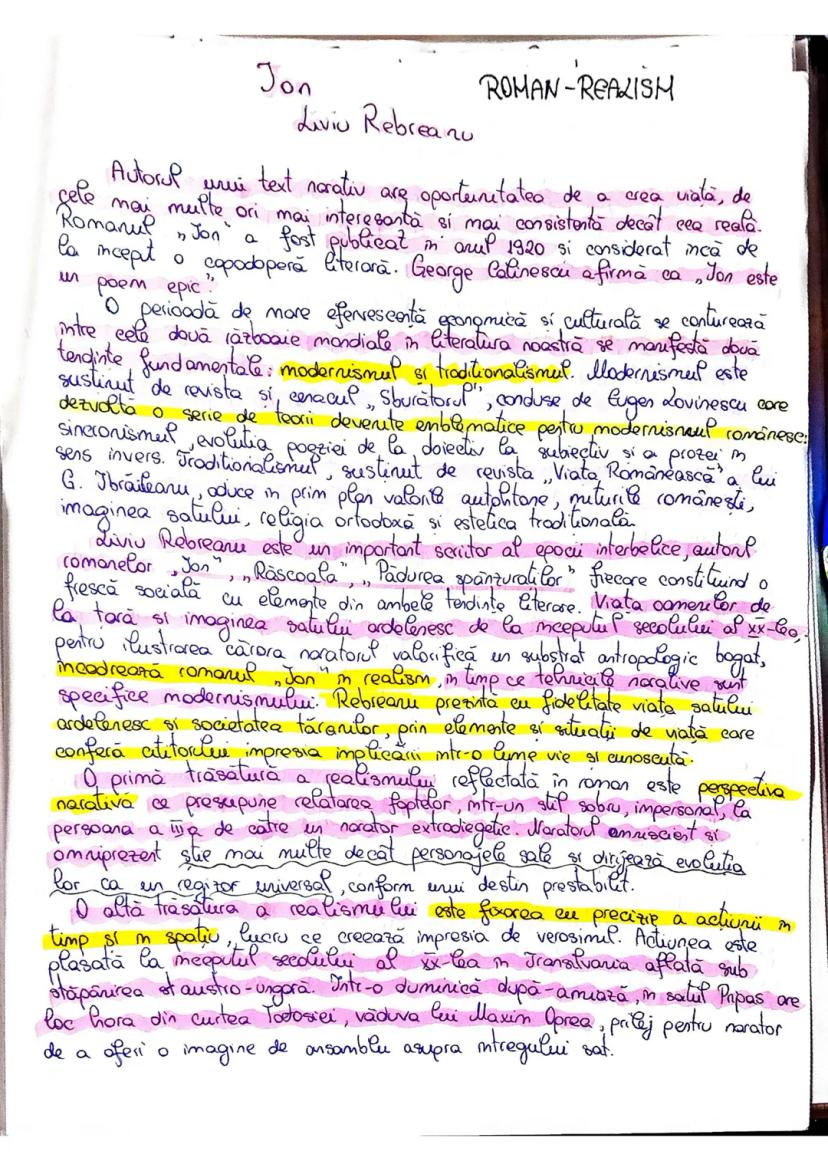 Ion
ROMAN-REALISM
Liviu Rebreanu
Autorul unui text narativ are oportunitatea de a crea viață, de
cele mai multe ori mai interesantă si mai consistentă decât cea reală.
Romanul "Ion" a fost publicat în anul 1920 si considerat încă de
la inceput o capodoperă literară. George Calinescu afirmă ca "Ion este
un poem epic".
O perioadă de mare efervescență economică si culturală se conturează
între cele două războaie mondiale în literatura noastră se manifestă două
tendinte fundamentale: modernismul si traditionalismul. Modernismul este
sustinut de revista si cenaclul „Sburătorul", conduse de Eugen Lovinescu care
dezvoltă o serie de teorii devenite emblematice pentru modernismul românesc:
sincronismul, evolutia poeziei de la obiectiv la subiectiv si a prozei in
sens invers. Traditionalismul, sustinut de revista „Viata Românească" a lui
G. Ibrăileanu, aduce in prim plan valorile autohtone, miturile românești,
imaginea satului, religia ortodoxă si estetica traditională.
Liviu Rebreanu este un important scriitor al epocii interbelice, autorul
romanelor „Ion", „Răscoala", „Pădurea spânzuratilor" fiecare constituind o
frescă socială cu elemente din ambele tendinte literare. Viata oamenilor de
la tară si imaginea satului ardelenesc de la inceputul secolului al XX-lea,
pentru ilustrarea cărora naratorul valorifică un substrat antropologic bogat,
incadrează romanul „Ion" in realism, in timp ce tehnicile narative sunt
specifice modernismului. Rebreanu prezintă cu fidelitate viata satului
ardelenesc si societatea tăranilor, prin elemente si situatii de viată care
conferă cititorului impresia implicării intr-o lume vie si cunoscută.
O primă trăsătură a realismului reflectată în roman este perspectiva
narativă ce presupune relatarea faptelor, intr-un stil sobru, impersonal, la
persoana a III a de catre un narator extradiegetic. Naratorul omniscient si
omniprezent știe mai multe decât personajele sale si dirijează evolutia
lor ca un regizor universal, conform unui destin prestabilit.
O altă trăsătura a realismului este fixarea cu precizie a actiunii in
timp si in spatiu, lucru ce creează impresia de verosimil. Actiunea este
plasată la inceputul secolului al XX-lea in Transilvania aflată sub
stăpânirea austro-ungară. Intr-o duminică după-amiază, in satul Pripas are
loc hora din curtea Todosiei, văduva lui Maxim Oprea, prilej pentru narator
de a oferi o imagine de ansamblu asupra intregului sat.